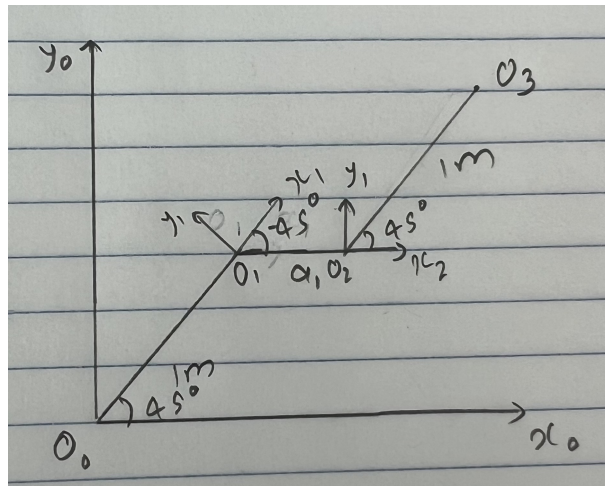 y₀
O₃
1m
x₁
y₁
y₁
-45°
45°
O₁
a₁
O₂
x₂
1m
45°
O₀
x₀